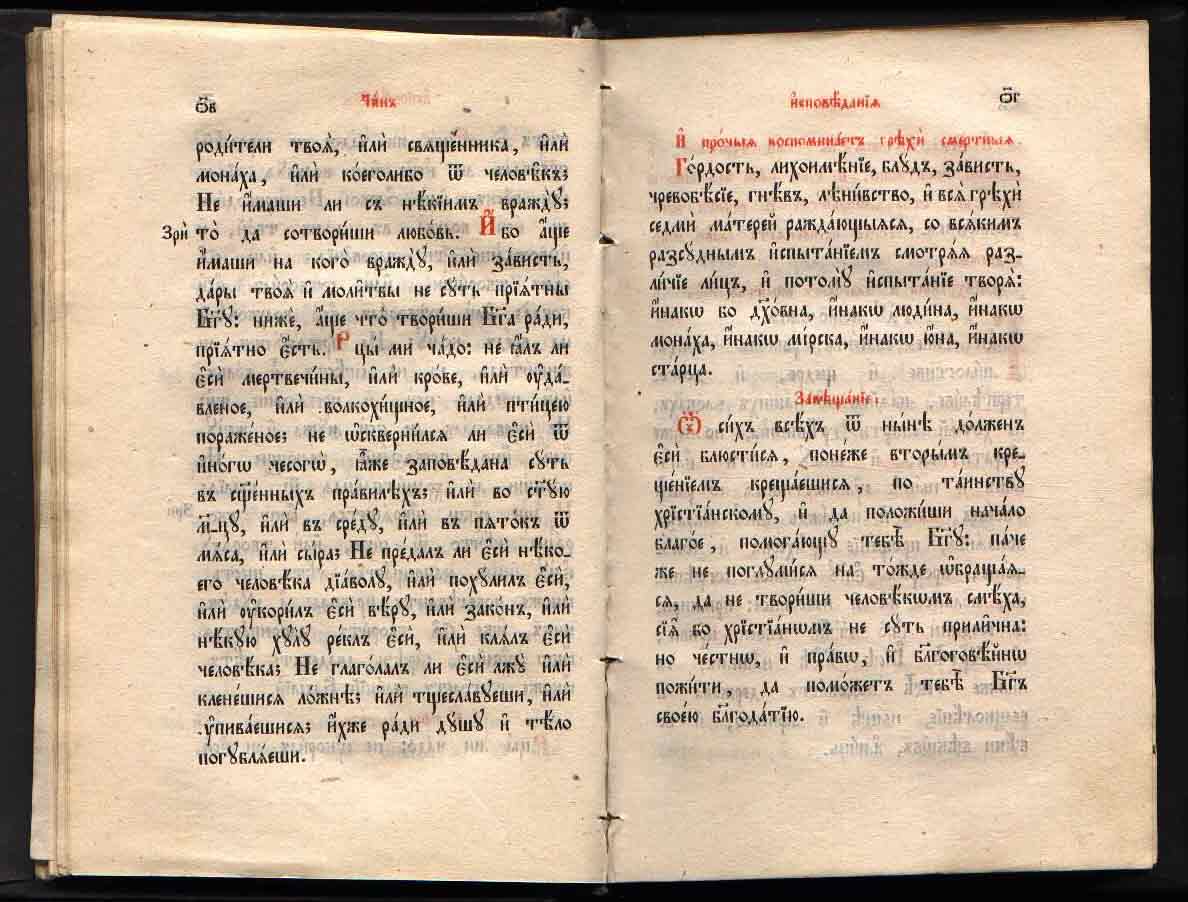 ѻ҃в
Чи́нъ
роди́тели твоѧ̀, и҆лѝ свѧще́нника, и҆лѝ
мона́ха, и҆лѝ ко́еголибо ѿ человѣ̑къ;
Не и҆́маши ли съ нѣ́кїимъ враждꙋ̀;
Зрѝ
то̀ да сотвори́ши любо́вь. И҆́бо а҆́ще
и҆́маши на кого̀ враждꙋ̀, и҆лѝ за́висть,
да́ры твоѧ̀ и҆ моли́твы не сꙋ́ть прїѧ́тны
Бг҃ꙋ: ниже, а҆́ще что̀ твори́ши Бг҃а ра́ди,
прїѧ́тно є҆́сть. Рцы́ ми ча́до: не ꙗ҆́лъ ли
є҆сѝ мертвечи́ны, и҆лѝ кро́ве, и҆лѝ оу҆да́-
вленое, и҆лѝ волкохи́щное, и҆лѝ пти́цею
пораже́ное; не ѡ҆скверни́лсѧ ли є҆сѝ ѿ
и҆но́гѡ чесогѡ̀, ꙗ҆̀же заповѣ́дана сꙋ́ть
въ сщ҃е́нныхъ пра́вилѣхъ; и҆лѝ во ст҃ꙋ́ю
м҃цꙋ, и҆лѝ въ сре́дꙋ, и҆лѝ въ пѧто́къ ѿ
мѧ́са, и҆лѝ сы́ра; Не пре́далъ ли є҆сѝ нѣ́ко-
его человѣ́ка дїа́волꙋ, и҆лѝ похꙋ́лилъ є҆сѝ,
и҆лѝ оу҆кори́лъ є҆сѝ вѣ́рꙋ, и҆лѝ зако́нъ, и҆лѝ
нѣ́кꙋю хꙋлꙋ̀ ре́клъ є҆сѝ, и҆лѝ клѧ́лъ є҆сѝ
человѣ́ка; Не глаго́лалъ ли є҆сѝ лжꙋ̀ и҆лѝ
клене́шисѧ ло́жнѣ; и҆лѝ тщесла́вꙋеши, и҆лѝ
ᲂу҆пива́ешисѧ; и҆́хже ра́ди дꙋ́шꙋ и҆ тѣ́ло
погꙋблѧ́еши.
и҆сповѣ́данїѧ
ѻ҃г
И҆ про́чыѧ воспомина́етъ грѣхѝ сме́ртныѧ
Го́рдость, лихоимѣ́нїе, блꙋ́дъ, за́висть,
чревобѣ́сїе, гнѣ́въ, лѣни́вство, и҆ всѧ̀ грѣхѝ
седми̑ ма́терей ражда́ющыѧсѧ, со всѧ́кимъ
разсꙋ́днымъ и҆спыта́нїемъ смотрѧ́ѧ раз-
ли́чїе ли́цъ, и҆ потомꙋ̀ и҆спыта́нїе творѧ̀:
и҆́накѡ бо дꙋхо́вна, и҆́накѡ лю́дина, и҆́накѡ
мона́ха, и҆́накѡ мі́рска, и҆́накѡ ю҆́на, и҆́накѡ
ста́рца.
Завѣща́нїе:
Ѿ си́хъ всѣ́хъ ѿ ны́нѣ до́лженъ
є҆сѝ блюсти́сѧ, поне́же вторы́мъ кре-
ще́нїемъ креща́ешисѧ, по та́инствꙋ
хрїстїа́нскомꙋ, и҆ да положи́ши нача́ло
благо́е, помога́ющꙋ тебѣ̀ Бг҃ꙋ: па́че
же не поглꙋми́сѧ на то́жде ѡ҆браща́ѧ-
сѧ, да не твори́ши человѣ́кѡмъ смѣ́ха,
сїѧ̑ бо хрїстїа́нѡмъ не сꙋ́ть прили́чна:
но че́стнѡ, и҆ пра́вѡ, и҆ бл҃гоговѣ́йнѡ
пожи́ти, да помо́жетъ тебѣ̀ Бг҃ъ
свое́ю бл҃года́тїю.